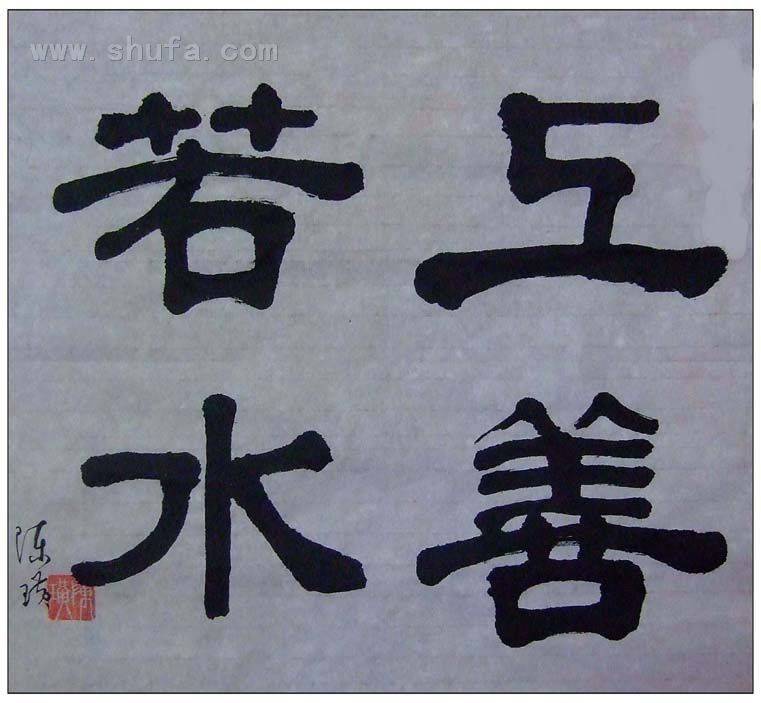 www.shufa.com
上善
若水
陈璜
陳璜